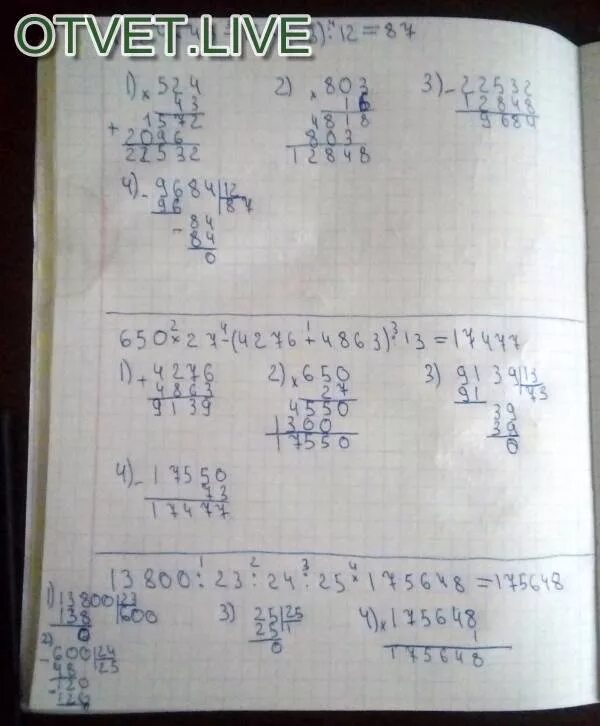 OTVET.LIVE
3):12=87
1) × 524
43
1572
+
2096
22532
2) × 803
16
4818
803
12848
3) - 22532
12848
9684
4) - 9684 | 12
96 87
- 84
84
0
650×27-(4276+4863):13=17477
2 4 1 3
1) + 4276
4863
9139
2) × 650
27
4550
1300
17550
3) 9139 | 13
91 73
39
39
0
4) - 17550
73
17477
13800:23:24:25×175648=175648
1 2 3 4
1) 13800 | 23
138 600
0
2)
- 600 | 24
48 25
- 120
120
3) 25 | 25
25 1
0
4) × 175648
1
175648